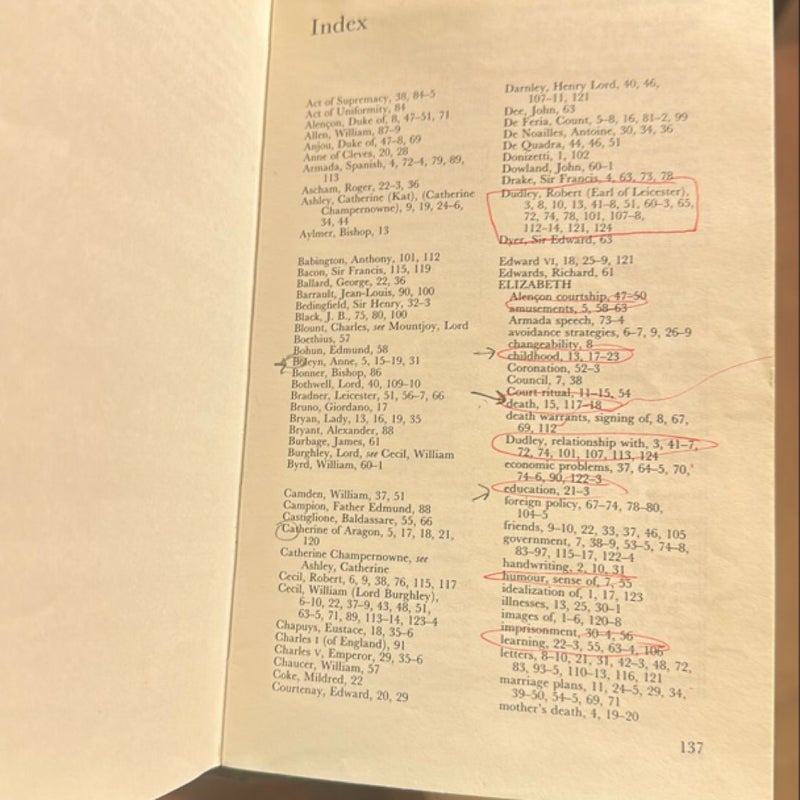 Index
Act of Supremacy, 38, 84–5
Act of Uniformity, 84
Alençon, Duke of, 8, 47–51, 71
Allen, William, 87–9
Anjou, Duke of, 47–8, 69
Anne of Cleves, 20, 28
Armada, Spanish, 4, 72–4, 79, 89,
113
Ascham, Roger, 22–3, 36
Ashley, Catherine (Kat), (Catherine
Champernowne), 9, 19, 24–6,
34, 44
Aylmer, Bishop, 13
Babington, Anthony, 101, 112
Bacon, Sir Francis, 115, 119
Ballard, George, 22, 36
Barrault, Jean-Louis, 90, 100
Bedingfield, Sir Henry, 32–3
Black, J. B., 75, 80, 100
Blount, Charles, see Mountjoy, Lord
Boethius, 57
Bohun, Edmund, 58
Boleyn, Anne, 5, 15–19, 31
Bonner, Bishop, 86
Bothwell, Lord, 40, 109–10
Bradner, Leicester, 51, 56–7, 66
Bruno, Giordano, 17
Bryan, Lady, 13, 16, 19, 35
Bryant, Alexander, 88
Burbage, James, 61
Burghley, Lord, see Cecil, William
Byrd, William, 60–1
Camden, William, 37, 51
Campion, Father Edmund, 88
Castiglione, Baldassare, 55, 66
Catherine of Aragon, 5, 17, 18, 21,
120
Catherine Champernowne, see
Ashley, Catherine
Cecil, Robert, 6, 9, 38, 76, 115, 117
Cecil, William (Lord Burghley),
6–10, 22, 37–9, 43, 48, 51,
63–5, 71, 89, 113–14, 123–4
Chapuys, Eustace, 18, 35–6
Charles I (of England), 91
Charles V, Emperor, 29, 35–6
Chaucer, William, 57
Coke, Mildred, 22
Courtenay, Edward, 20, 29
Darnley, Henry Lord, 40, 46,
107–11, 121
Dee, John, 63
De Feria, Count, 5–8, 16, 81–2, 99
De Noailles, Antoine, 30, 34, 36
De Quadra, 44, 46, 51
Donizetti, 1, 102
Dowland, John, 60–1
Drake, Sir Francis, 4, 63, 73, 78
Dudley, Robert (Earl of Leicester),
3, 8, 10, 13, 41–8, 51, 60–3, 65,
72, 74, 78, 101, 107–8,
112–14, 121, 124
Dyer, Sir Edward, 63
Edward VI, 18, 25–9, 121
Edwards, Richard, 61
ELIZABETH
Alençon courtship, 47–50
amusements, 5, 58–63
Armada speech, 73–4
avoidance strategies, 6–7, 9, 26–9
changeability, 8
childhood, 13, 17–23
Coronation, 52–3
Council, 7, 38
Court ritual, 11–15, 54
death, 15, 117–18
death warrants, signing of, 8, 67,
69, 112
Dudley, relationship with, 3, 41–7,
72, 74, 101, 107, 113, 124
economic problems, 37, 64–5, 70,
74–6, 90, 122–3
education, 21–3
foreign policy, 67–74, 78–80,
104–5
friends, 9–10, 22, 33, 37, 46, 105
government, 7, 38–9, 53–5, 74–8,
83–97, 115–17, 122–4
handwriting, 2, 10, 31
humour, sense of, 7, 55
idealization of, 1, 17, 123
illnesses, 13, 25, 30–1
images of, 1–6, 120–8
imprisonment, 30–4, 56
learning, 22–3, 55, 63–4, 106
letters, 8–10, 21, 31, 42–3, 48, 72,
83, 93–5, 110–13, 116, 121
marriage plans, 11, 24–5, 29, 34,
39–50, 54–5, 69, 71
mother's death, 4, 19–20
137